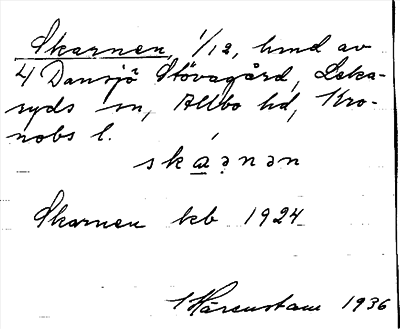 Skarnen, 1/12, hmd av
4 Dansjö Stövagård, Leka-
ryds sn, Allbo hd, Kro-
nobs l.
skáənən
Skarnen kb 1924
Härenstam 1936